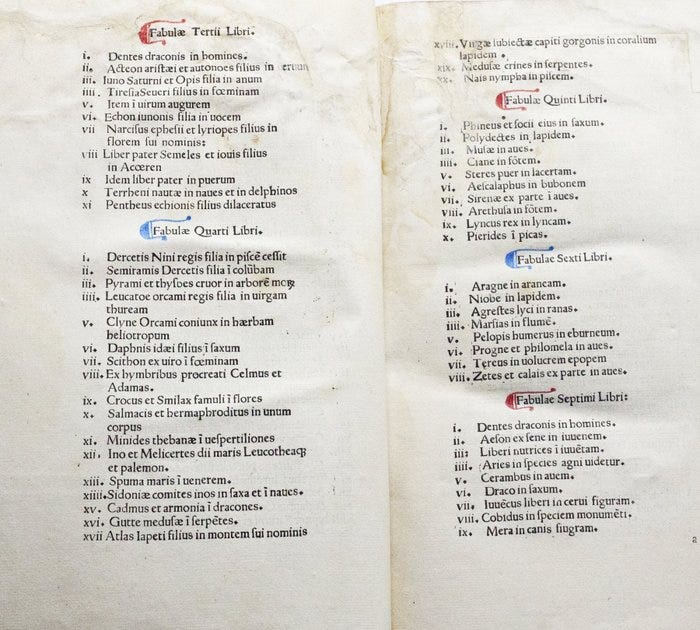 Fabulæ Tertii Libri.
i. Dentes draconis in homines.
ii. Acteon aristæi et autonoes filius in ceruum
iii. Iuno Saturni et Opis filia in anum
iiii. Tiresia Seueri filius in fœminam
v. Item i uirum augurem
vi. Echon iunonis filia in uocem
vii Narcisus ephesii et lyriopes filius in
florem sui nominis:
viii Liber pater Semeles et iouis filius
in Acœren
ix Idem liber pater in puerum
x Terrheni nautæ in naues et in delphinos
xi Pentheus echionis filius dilaceratus
Fabulæ Quarti Libri.
i. Dercetis Nini regis filia in piscē cessit
ii. Semiramis Dercetis filia ī colūbam
iii. Pyrami et thysbes cruor in arborē moꝝ
iiii. Leucatoe orcami regis filia in uirgam
thuream
v. Clyne Orcami coniunx in hærbam
heliotropium
vi. Daphnis idæi filius ī saxum
vii. Scithon ex uiro ī fœminam
viii. Ex hymbribus procreati Celmus et
Adamas.
ix. Crocus et Smilax famuli ī flores
x. Salmacis et bermaphroditus in unum
corpus
xi. Minides thebanæ ī uespertiliones
xii. Ino et Melicertes dii maris Leucotheaqꝫ
et palemon.
xiii. Spuma maris ī uenerem.
xiiii. Sidoniæ comites inos in saxa et ī naues.
xv. Cadmus et armonia ī dracones.
xvi. Gutte medusæ ī serpētes.
xvii Atlas Iapeti filius in montem sui nominis
xviii. Virgæ subiectæ capiti gorgonis in coralium
lapidem
xix. Medusæ crines in serpentes.
xx. Nais nympha in piscem.
Fabulæ Quinti Libri.
i. Phineus et socii eius in saxum.
ii. Polydectes in lapidem.
iii. Musæ in aues.
iiii. Ciane in fōtem.
v. Steres puer in lacertam.
vi. Aescalaphus in bubonem
vii. Sirenæ ex parte ī aues.
viii. Arethusa in fōtem.
ix. Lyncus rex in lyncam.
x. Pierides ī picas.
Fabulae Sexti Libri.
i. Aragne in araneam.
ii. Niobe in lapidem.
iii. Agrestes lyci in ranas.
iiii. Marsias in flumē.
v. Pelopis humerus in eburneum.
vi. Progne et philomela in aues.
vii. Tereus in uolucrem epopem
viii. Zetes et calais ex parte in aues.
Fabulae Septimi Libri:
i. Dentes draconis in homines.
ii. Aeson ex sene in iuuenem.
iii: Liberi nutrices ī iuuētam.
iiii. Aries in species agni uidetur.
v. Cerambus in auem.
vi. Draco in saxum.
vii. Iuuēcus liberi in cerui figuram.
viii. Cobidus in speciem monumēti.
ix. Mera in canis fiugram.
a